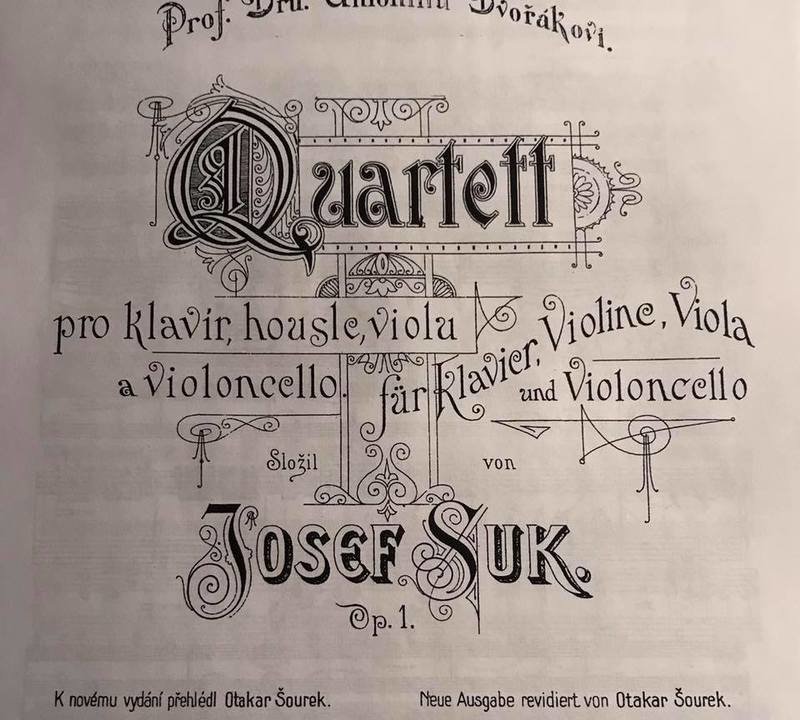 Prof. Dru. Antonínu Dvořákovi.
Quartett
pro klavír, housle, violu
a violoncello.
für Klavier, Violine, Viola
und Violoncello
Složil
von
Josef Suk.
Op. 1.
K novému vydání přehlédl Otakar Šourek.
Neue Ausgabe revidiert von Otakar Šourek.